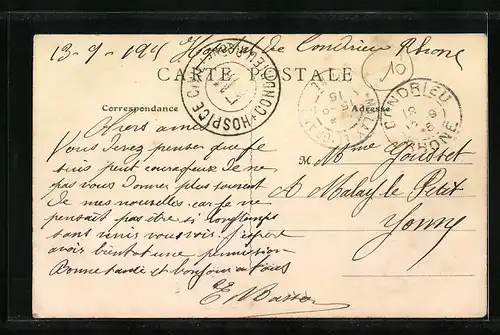 13-9-1915 Hopital de Condrieu Rhone
CARTE POSTALE
HOSPICE
CONDRIEU
RHONE
10
Correspondance
Adresse
Chers amis
Vous devez penser que je
suis peut courageux de ne
pas vous donner plus souvent
de mes nouvelles car je ne
pensait pas être si longtemps
sans venir vous voir. J'espere
avoir bientot une permission
Bonne santé et bonjour a tous
M me
A Malay le Petit
Yonne